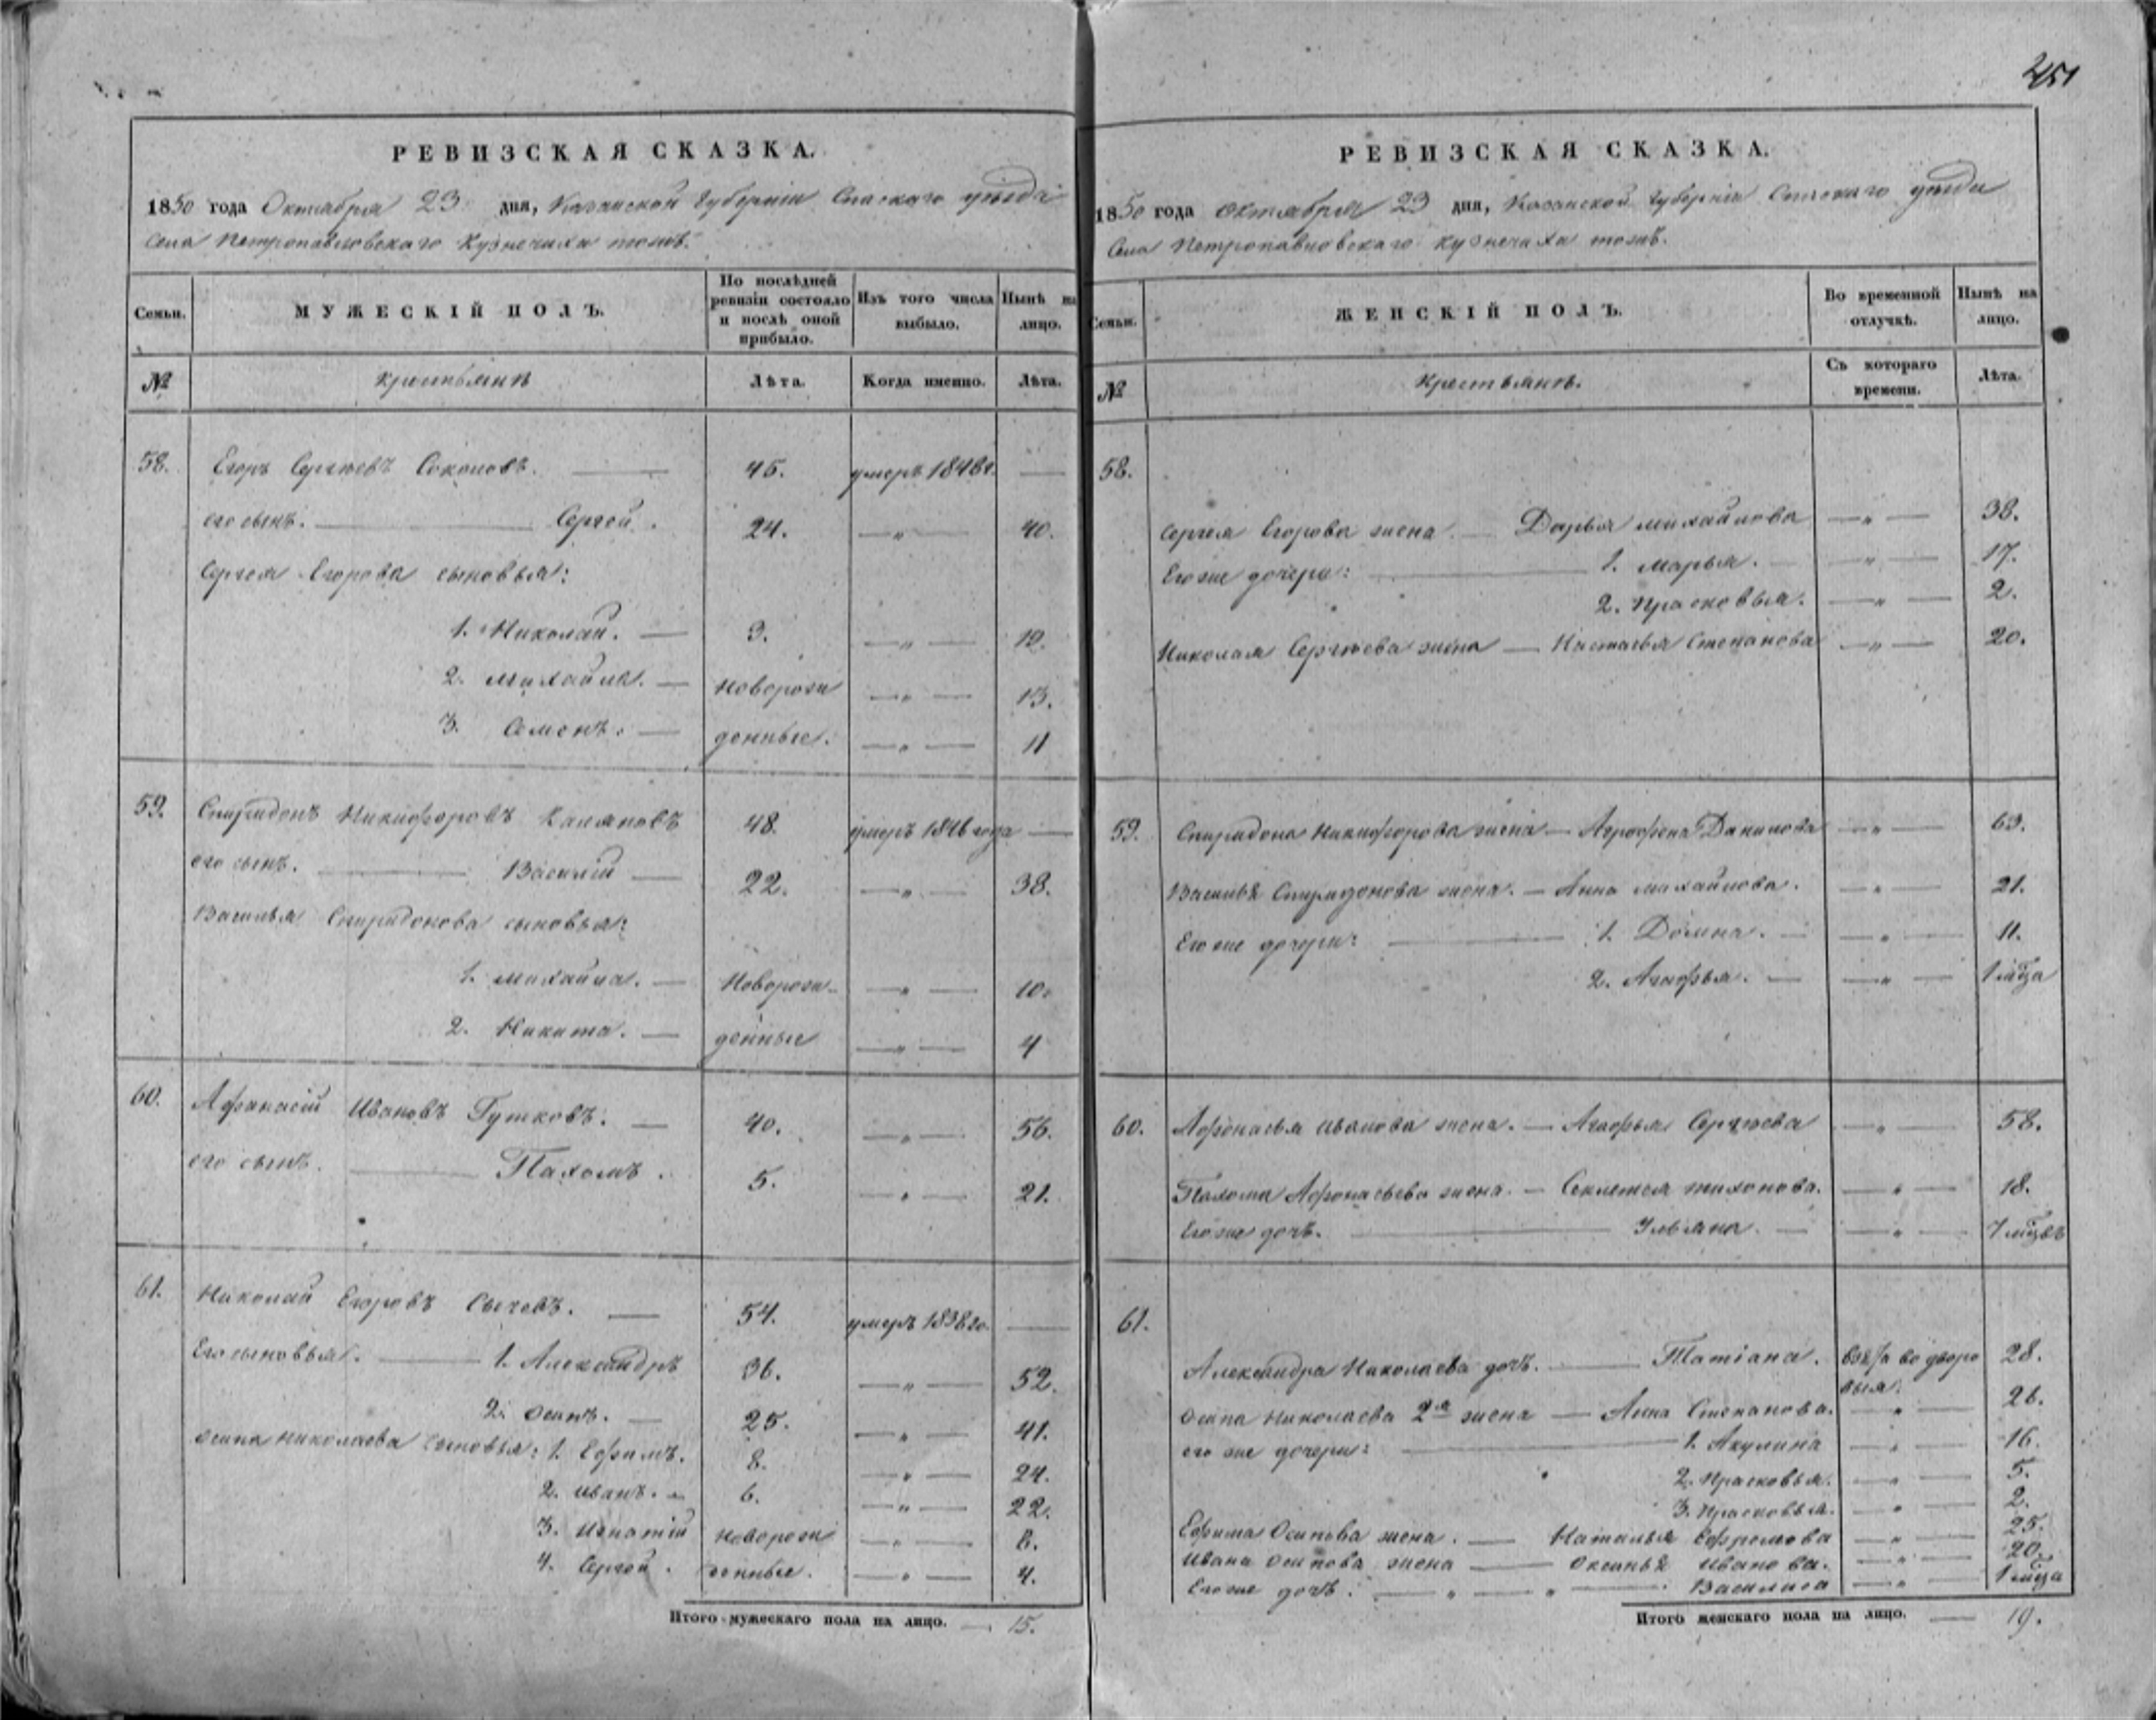 251
РЕВИЗСКАЯ СКАЗКА.
1850 года Октября 23 дня, Казанской Губерніи Спаского уѣзда
Села Петропавловскаго Кузнечиха тожъ.
Семьи. МУЖЕСКІЙ ПОЛЪ. По послѣдней ревизіи состояло и послѣ оной прибыло. Изъ того числа выбыло. Нынѣ на лицо.
№ Крестьянъ Лѣта. Когда именно. Лѣта.
58. Егоръ Сергѣевъ Соколовъ. — 45. умеръ 1848г. —
его сынъ. — Сергей. 24. —„— 40.
Сергея Егорова сыновья:
1. Николай. — 3. —„— 19.
2. Михайла. — Новорож —„— 13.
3. Семенъ. — денные. —„— 11
59. Спиридонъ Никифоровъ Каляновъ 48. умеръ 1846 года —
его сынъ. — Василій — 22. —„— 38.
Василья Спиридонова сыновья:
1. Михайла. — Новорож- —„— 10.
2. Никита. — денные —„— 4
60. Афанасій Ивановъ Гутковъ. — 40. —„— 56.
его сынъ. — Пахомъ. 5. —„— 21.
61. Николай Егоровъ Сычевъ. — 54. умеръ 1838го. —
Его сыновья. — 1. Александръ 36. —„— 52.
2. Осипъ. — 25. —„— 41.
Осипа Николаева сыновья: 1. Ефимъ. 8. —„— 24.
2. Иванъ. — 6. —„— 22.
3. Игнатій Новорож —„— 8.
4. Сергей. денные. —„— 4.
Итого мужескаго пола на лицо. — 15.
РЕВИЗСКАЯ СКАЗКА.
1850 года Октября 23 дня, Казанской Губерніи Спаского уѣзда
Села Петропавловскаго Кузнечиха тожъ.
Семьи. ЖЕНСКІЙ ПОЛЪ. Во временной отлучкѣ. Нынѣ на лицо.
№ Крестьянъ. Съ котораго времени. Лѣта.
58.
Сергея Егорова жена — Дарья Михайлова —„— 38.
Его же дочери: — 1. Марья. —„— 17.
2. Прасковья. —„— 2.
Николая Сергѣева жена — Настасья Степанова —„— 20.
59. Спиридона Никифорова жена — Агрофена Данилова —„— 63.
Василья Спиридонова жена. — Анна Михайлова. —„— 21.
Его же дочери: — 1. Домна. — —„— 11.
2. Агафья. — —„— 1 мѣца
60. Афонасья Иванова жена. — Агафья Сергѣева —„— 58.
Пахома Афонасьева жена. — Секлетея Тихонова. —„— 18.
Его же дочь. — Ульяна. — —„— 7 мѣцвъ
61.
Александра Николаева дочь. — Татіана. взята во дворо 28.
выя.
Осипа Николаева 2я жена — Анна Степанова. —„— 26.
его же дочери: — 1. Акулина —„— 16.
2. Прасковья. —„— 5.
3. Прасковья. —„— 2.
Ефима Осипова жена. — Наталья Ефремова —„— 25.
Ивана Осипова жена — Оксинья Иванова. —„— 20.
Его же дочь. —„—„— Василиса —„— 1 мѣца
Итого женскаго пола на лицо. — 19.